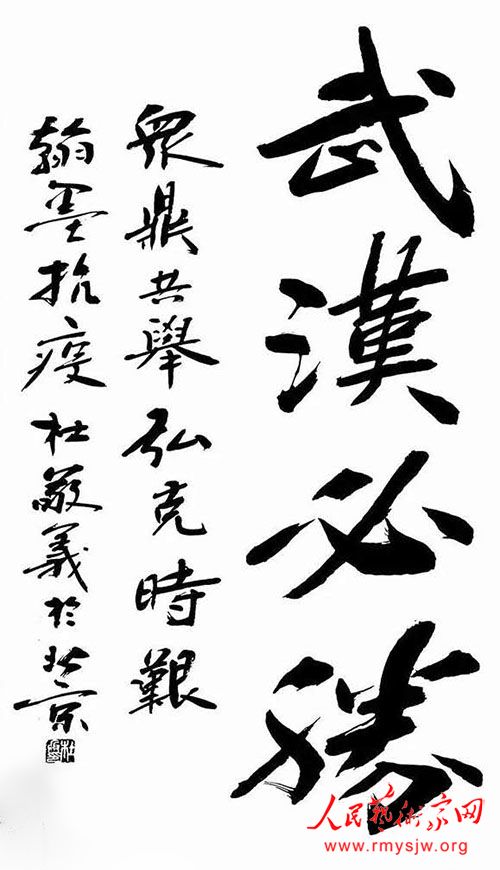 武漢必勝
眾鼎共舉弘克時艱
翰墨抗疫杜敬義於北京
人民藝術家网
www.rmysjw.org